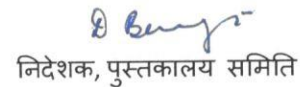 निदेशक, पुस्तकालय समिति